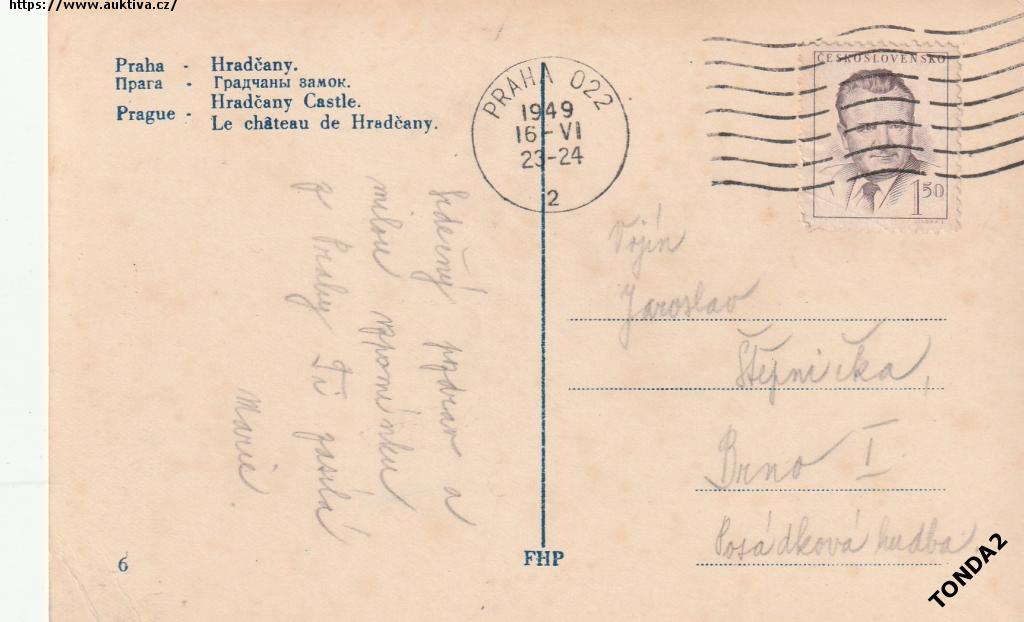 https://www.auktiva.cz/
Praha - Hradčany.
Прага - Градчаны замок.
Prague - Hradčany Castle.
Le château de Hradčany.
PRAHA 022
1949
16-VI
23-24
2
ČESKOSLOVENSKO
1 50
Srdečný pozdrav a
milou vzpomínku
z Prahy Ti zasílá
Marie.
Vojín
Jaroslav
Štěpnička,
Brno I
Posádková hudba
6
FHP
TONDA2